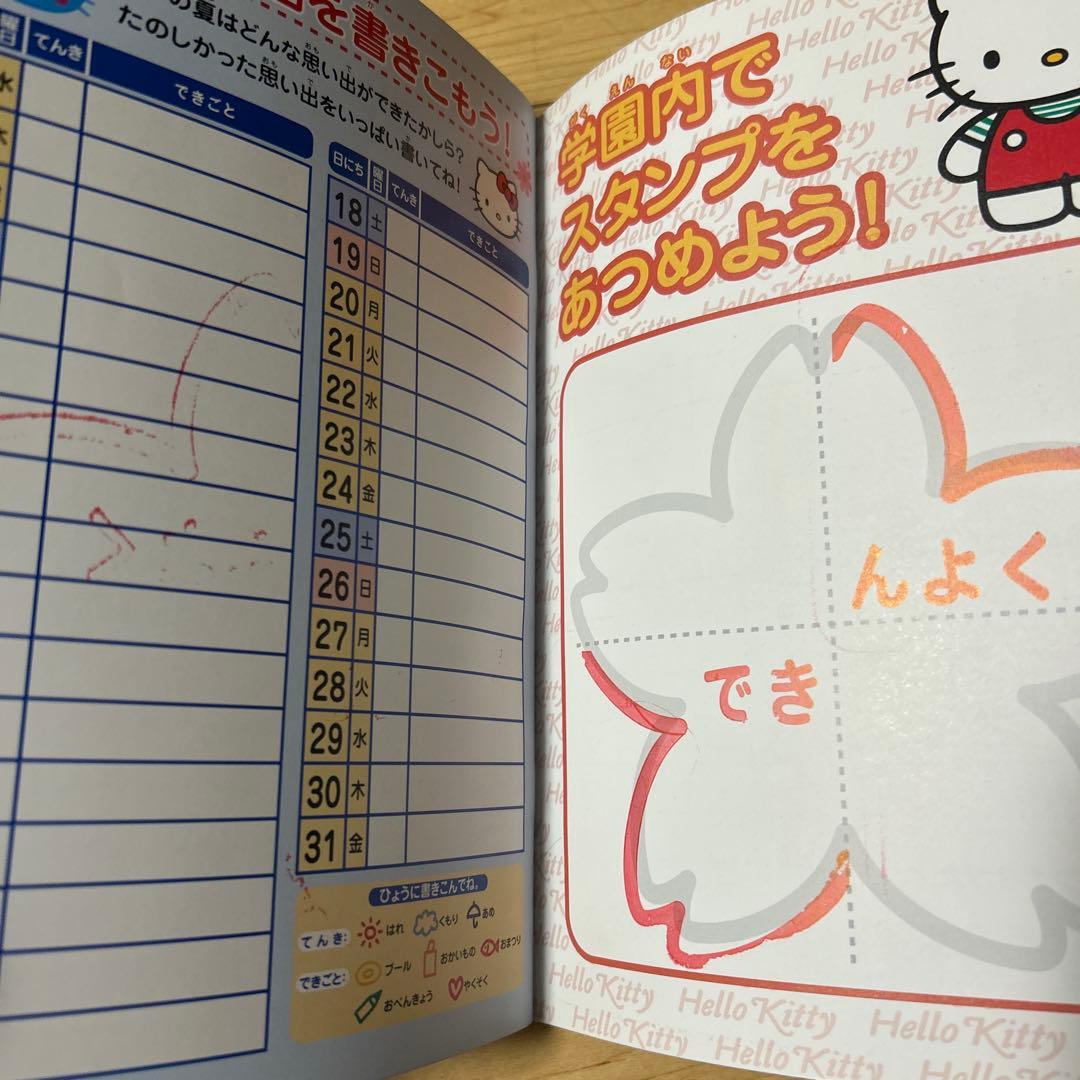 を書きこもう!
の夏はどんな思い出ができたかしら?
たのしかった思い出をいっぱい書いてね!
曜日 てんき できごと
水
木
日にち 曜日 てんき できごと
18 土
19 日
20 月
21 火
22 水
23 木
24 金
25 土
26 日
27 月
28 火
29 水
30 木
31 金
ひょうに書きこんでね。
てんき: はれ くもり あめ
できごと: プール おかいもの おまつり
おべんきょう やくそく
Hello Kitty
学園内で
スタンプを
あつめよう!
んよく
でき
Hello Kitty Hello Kitty Hello Kitty
Hello Kitty Hello Kitty Hello Kitty